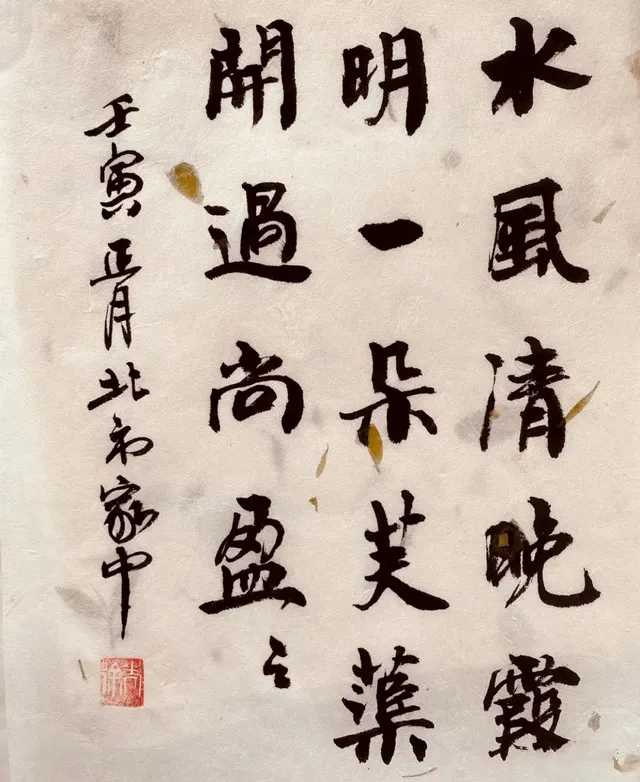 水風清晚霞
明一朵芙蕖
開過尚盈〻
壬寅正月北京家中